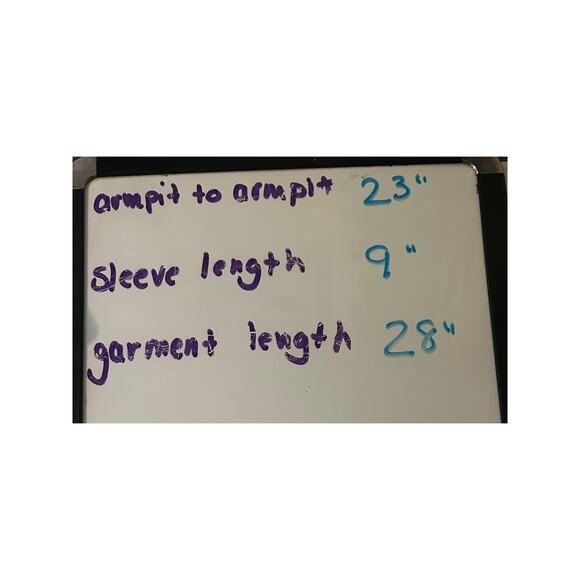 armpit to armpit 23"
sleeve length 9"
garment length 28"